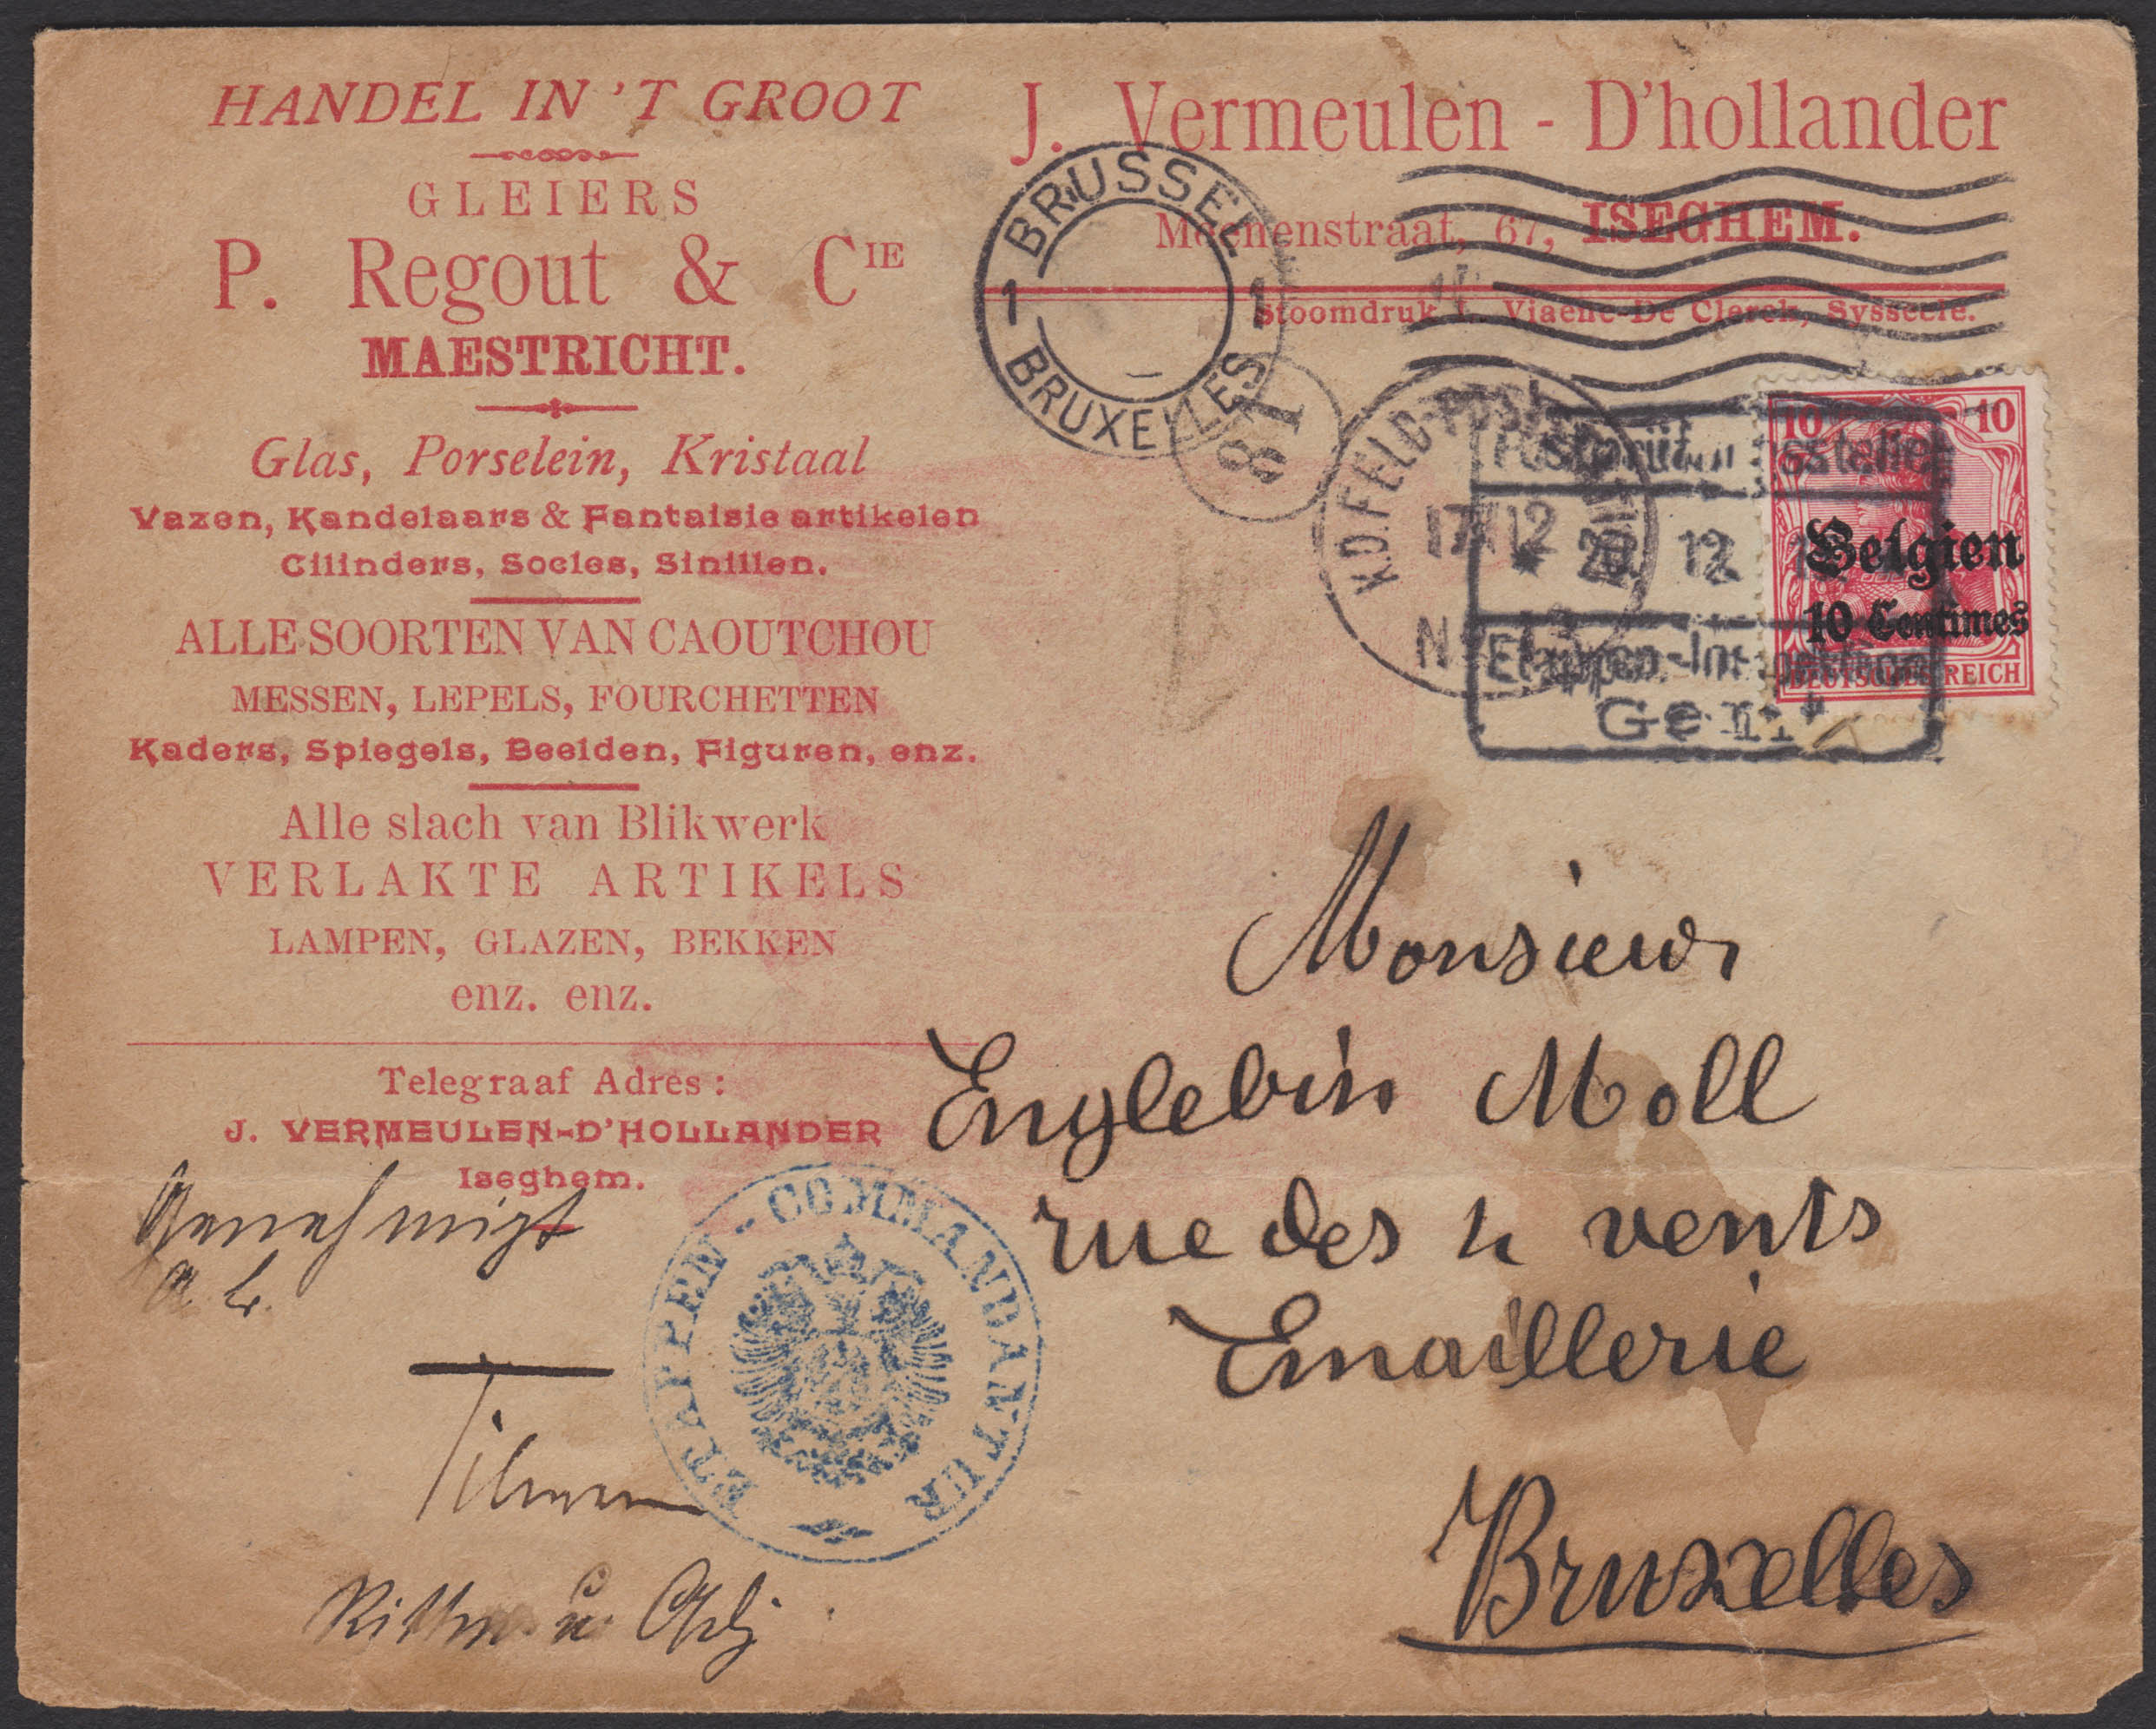 HANDEL IN 'T GROOT
GLEIERS
P. Regout & CIE
MAESTRICHT.
Glas, Porselein, Kristaal
Vazen, Kandelaars & Fantaisie artikelen
Cilinders, Socles, Sinillen.
ALLE SOORTEN VAN CAOUTCHOU
MESSEN, LEPELS, FOURCHETTEN
Kaders, Spiegels, Beelden, Figuren, enz.
Alle slach van Blikwerk
VERLAKTE ARTIKELS
LAMPEN, GLAZEN, BEKKEN
enz. enz.
Telegraaf Adres :
J. VERMEULEN-D'HOLLANDER
Iseghem.
J. Vermeulen - D'hollander
Meenenstraat, 67, ISEGHEM.
Stoomdruk Viaene-De Clerck, Sysseele.
1 BRUSSEL 1
BRUXELLES
81
K.D. FELD-POST
17 12
Postprüfungsstelle
20. 12.
Etappen-Inspektion
Gent
10 10
Belgien
10 Centimes
DEUTSCHES REICH
Monsieur
Englebin Moll
rue des 4 vents
Emaillerie
Bruxelles
Genehmigt
ETAPPEN-COMMANDANTUR
Rittm. u.